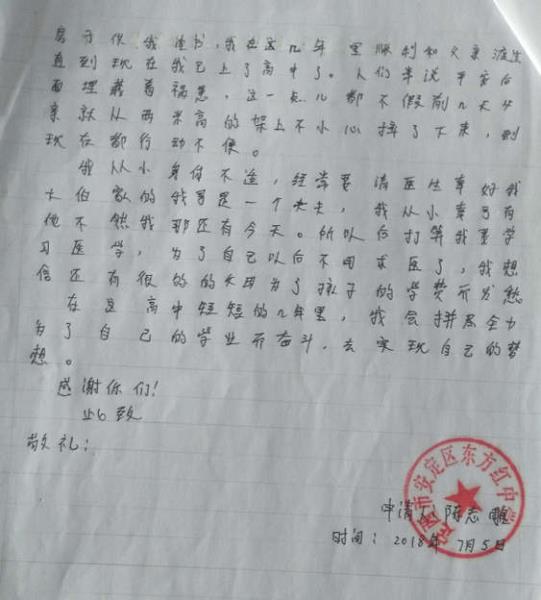 房子供我读书,我在这几年里顺利和父亲渡过
直到现在我已上了高中了。人们常说平安后
面埋藏着祸患,这一点儿都不假前几天父
亲就从两米高的架上不小心摔了下来,到
现在都行动不便。
我从小身体不适,经常要请医生幸好我
大伯家的我哥是一个大夫,我从小幸亏有
他不然我那还有今天。所以后打算我要学
习医学,为了自己以后不用求医了,我想
信还有很的的大因为了孩子的学费而发愁
在这高中短短的几年里,我会拼尽全力
为了自己的学业而奋斗,去实现自己的梦
想。
感谢你们!
此致
敬礼:
定西市安定区东方红中学
申请人:陈志鹏
时间:2018年7月5日